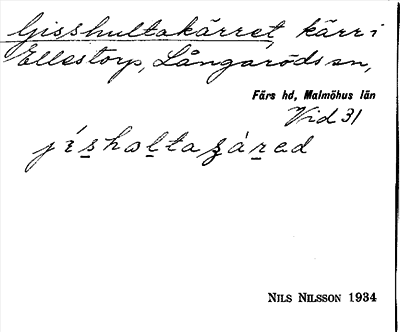 Gisshultakärret, kärr i
Ellestorp, Långaröds sn,
Färs hd, Malmöhus län
Vid 31
jísholtazárad
NILS NILSSON 1934